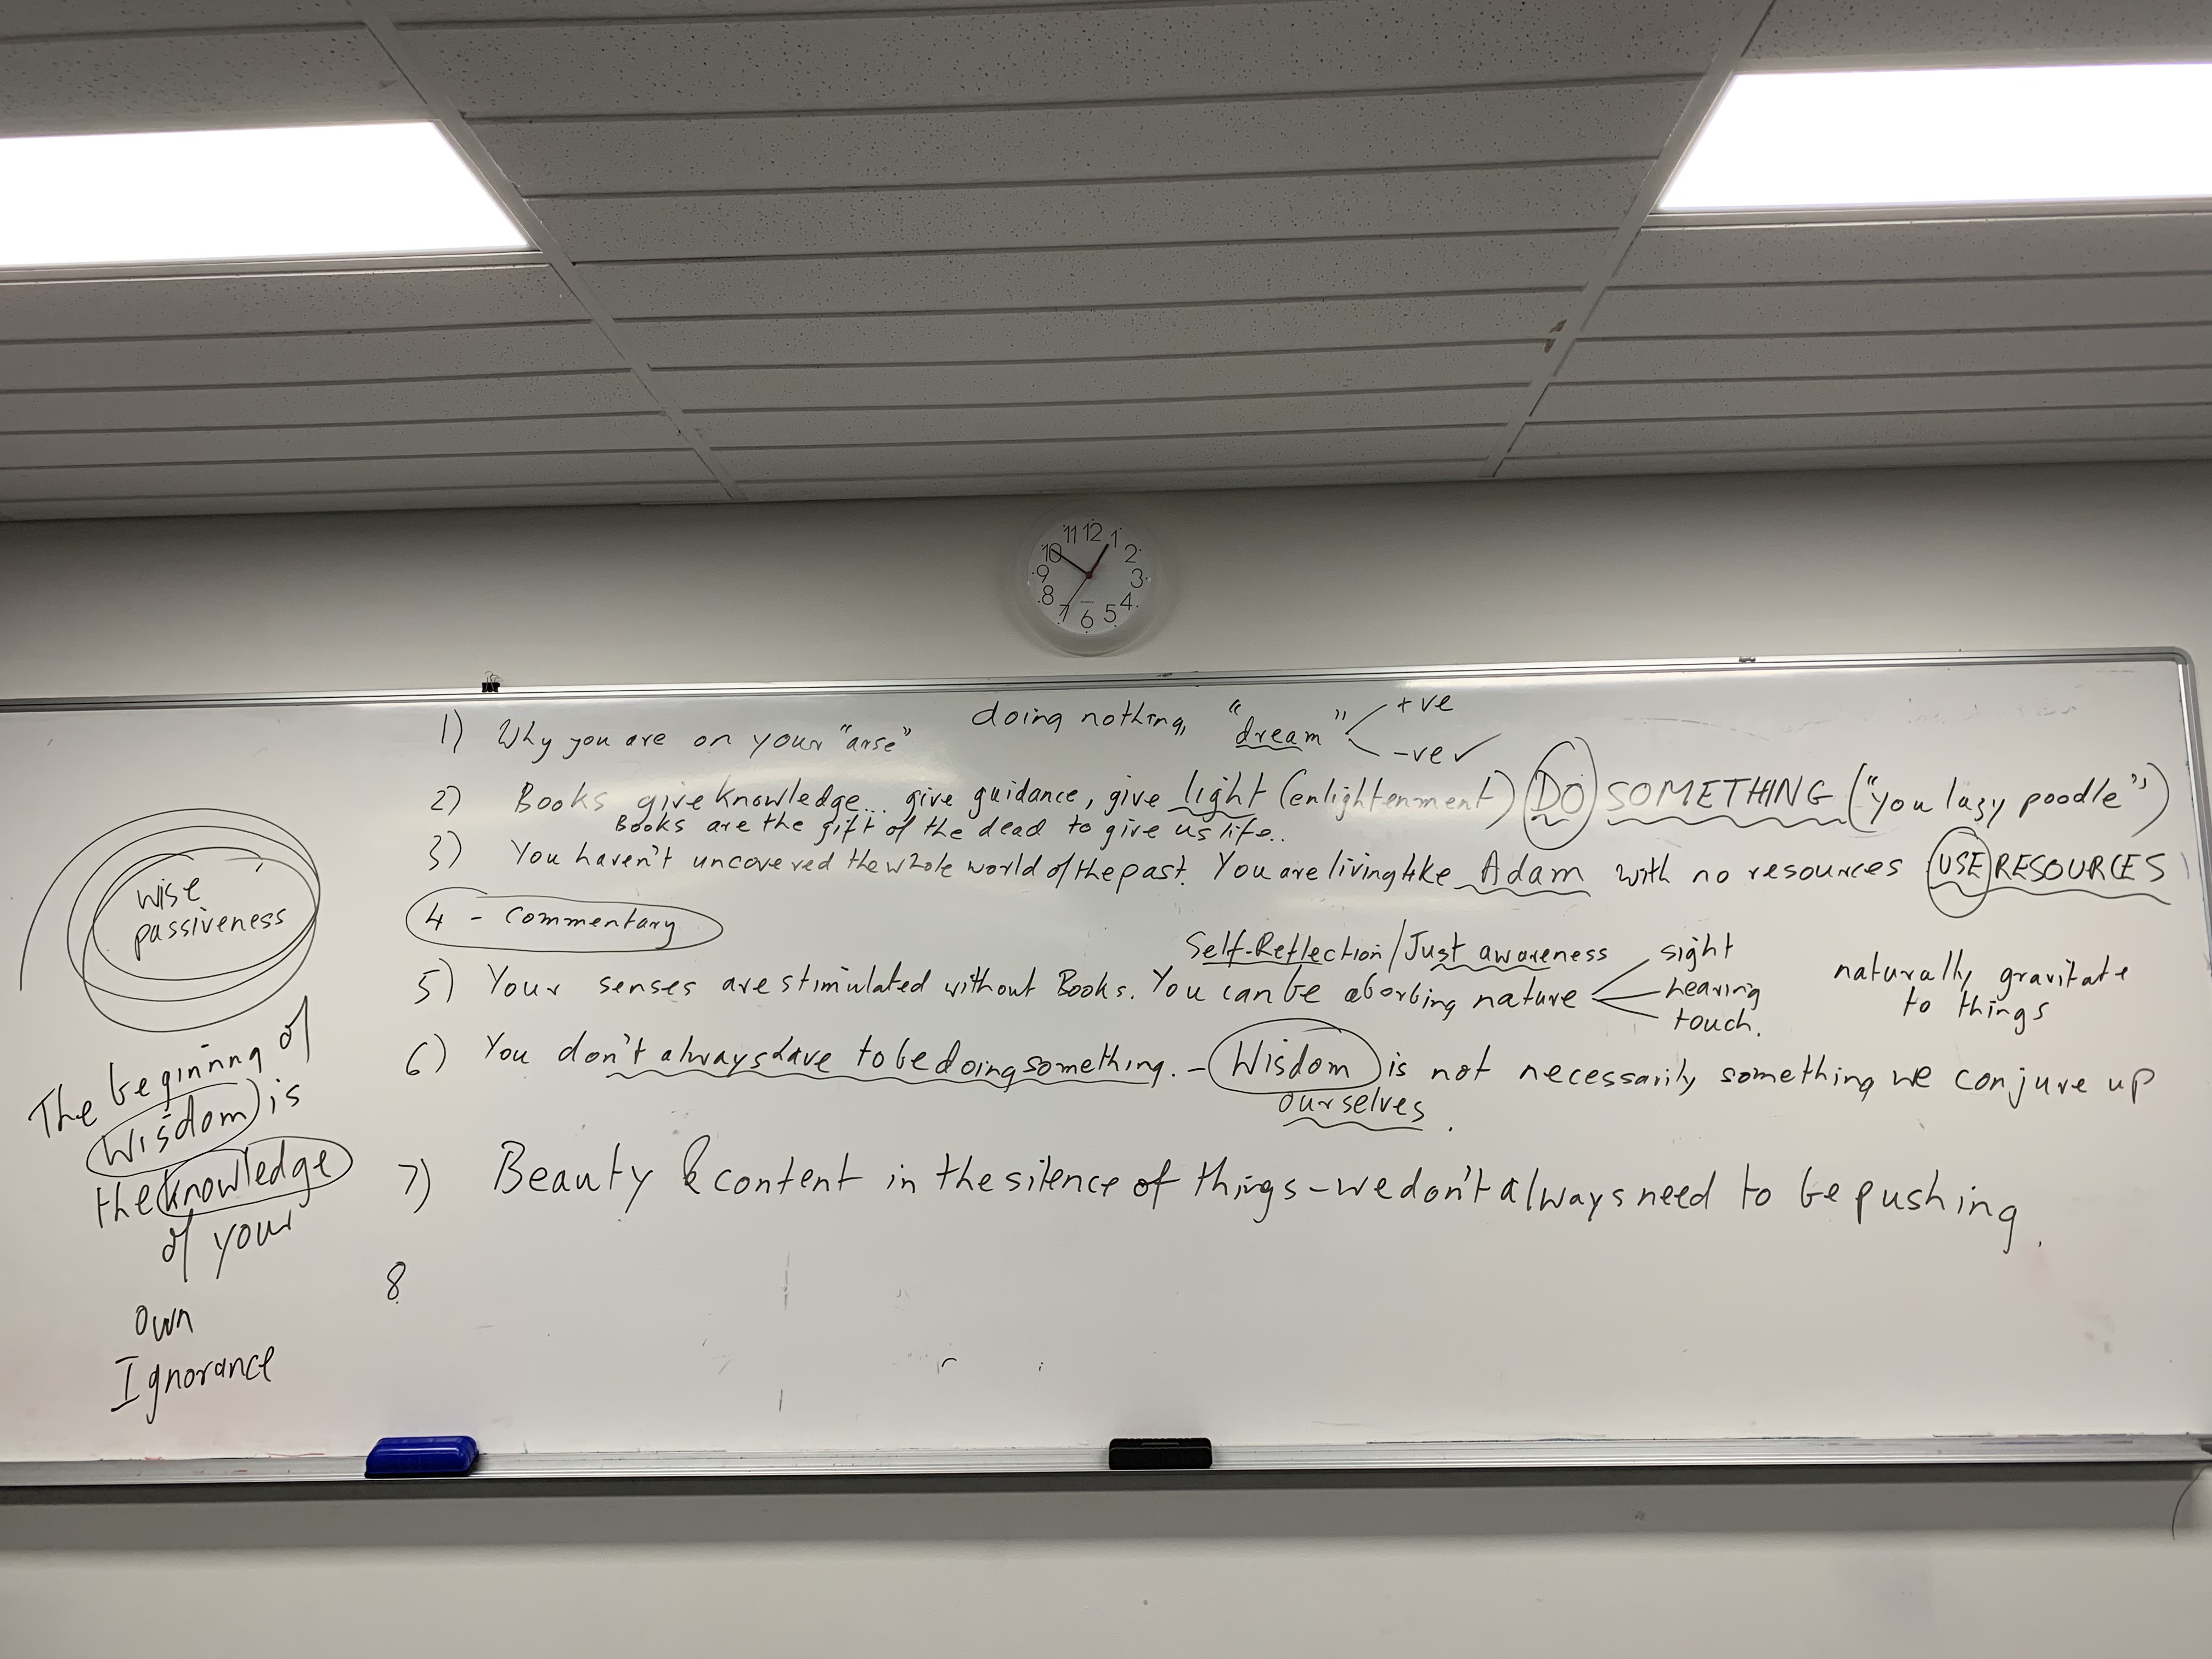 11 12 1
10 2
9 3
8 4
7 6 5
1) Why you are on your "arse" doing nothing, "dream" +ve
-ve ✓
2) Books give knowledge... give guidance, give light (enlightenment) DO SOMETHING ("you lazy poodle")
Books are the gift of the dead to give us life..
3) You haven't uncovered the whole world of the past. You are living like Adam with no resources USE RESOURCES
4 - Commentary
Self-Reflection / Just awareness
5) Your senses are stimulated without Books. You can be aborbing nature sight
hearing
touch.
naturally gravitate
to things
6) You don't always have to be doing something. - Wisdom is not necessarily something we conjure up
ourselves.
7) Beauty & content in the silence of things - we don't always need to be pushing.
8
wise
passiveness
The beginnng of
Wisdom is
the knowledge
of your
own
Ignorance